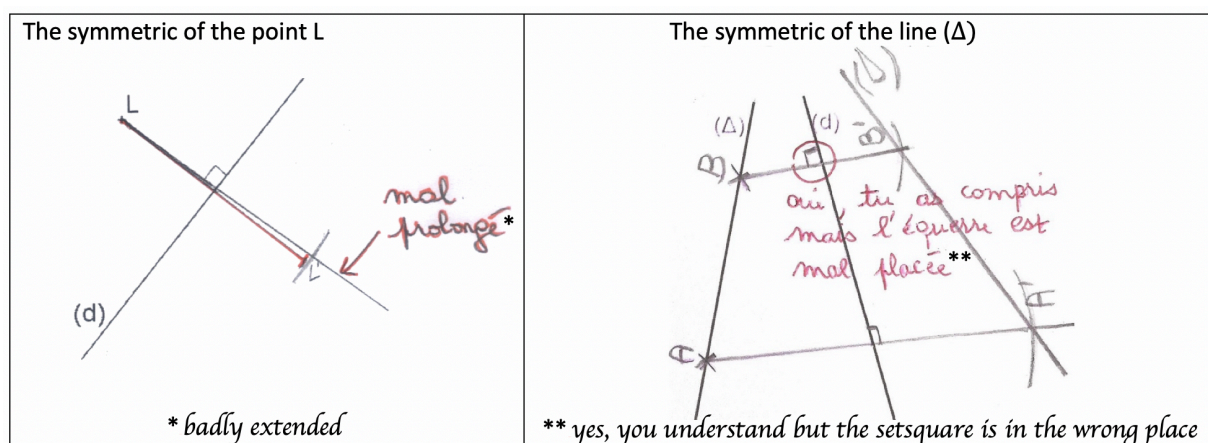 The symmetric of the point L
L
mal
prolongé*
L'
(d)
* badly extended
The symmetric of the line (Δ)
(Δ)
(Δ)
(d)
B'
B
oui, tu as compris
mais l'équerre est
mal placée**
A'
A
** yes, you understand but the setsquare is in the wrong place